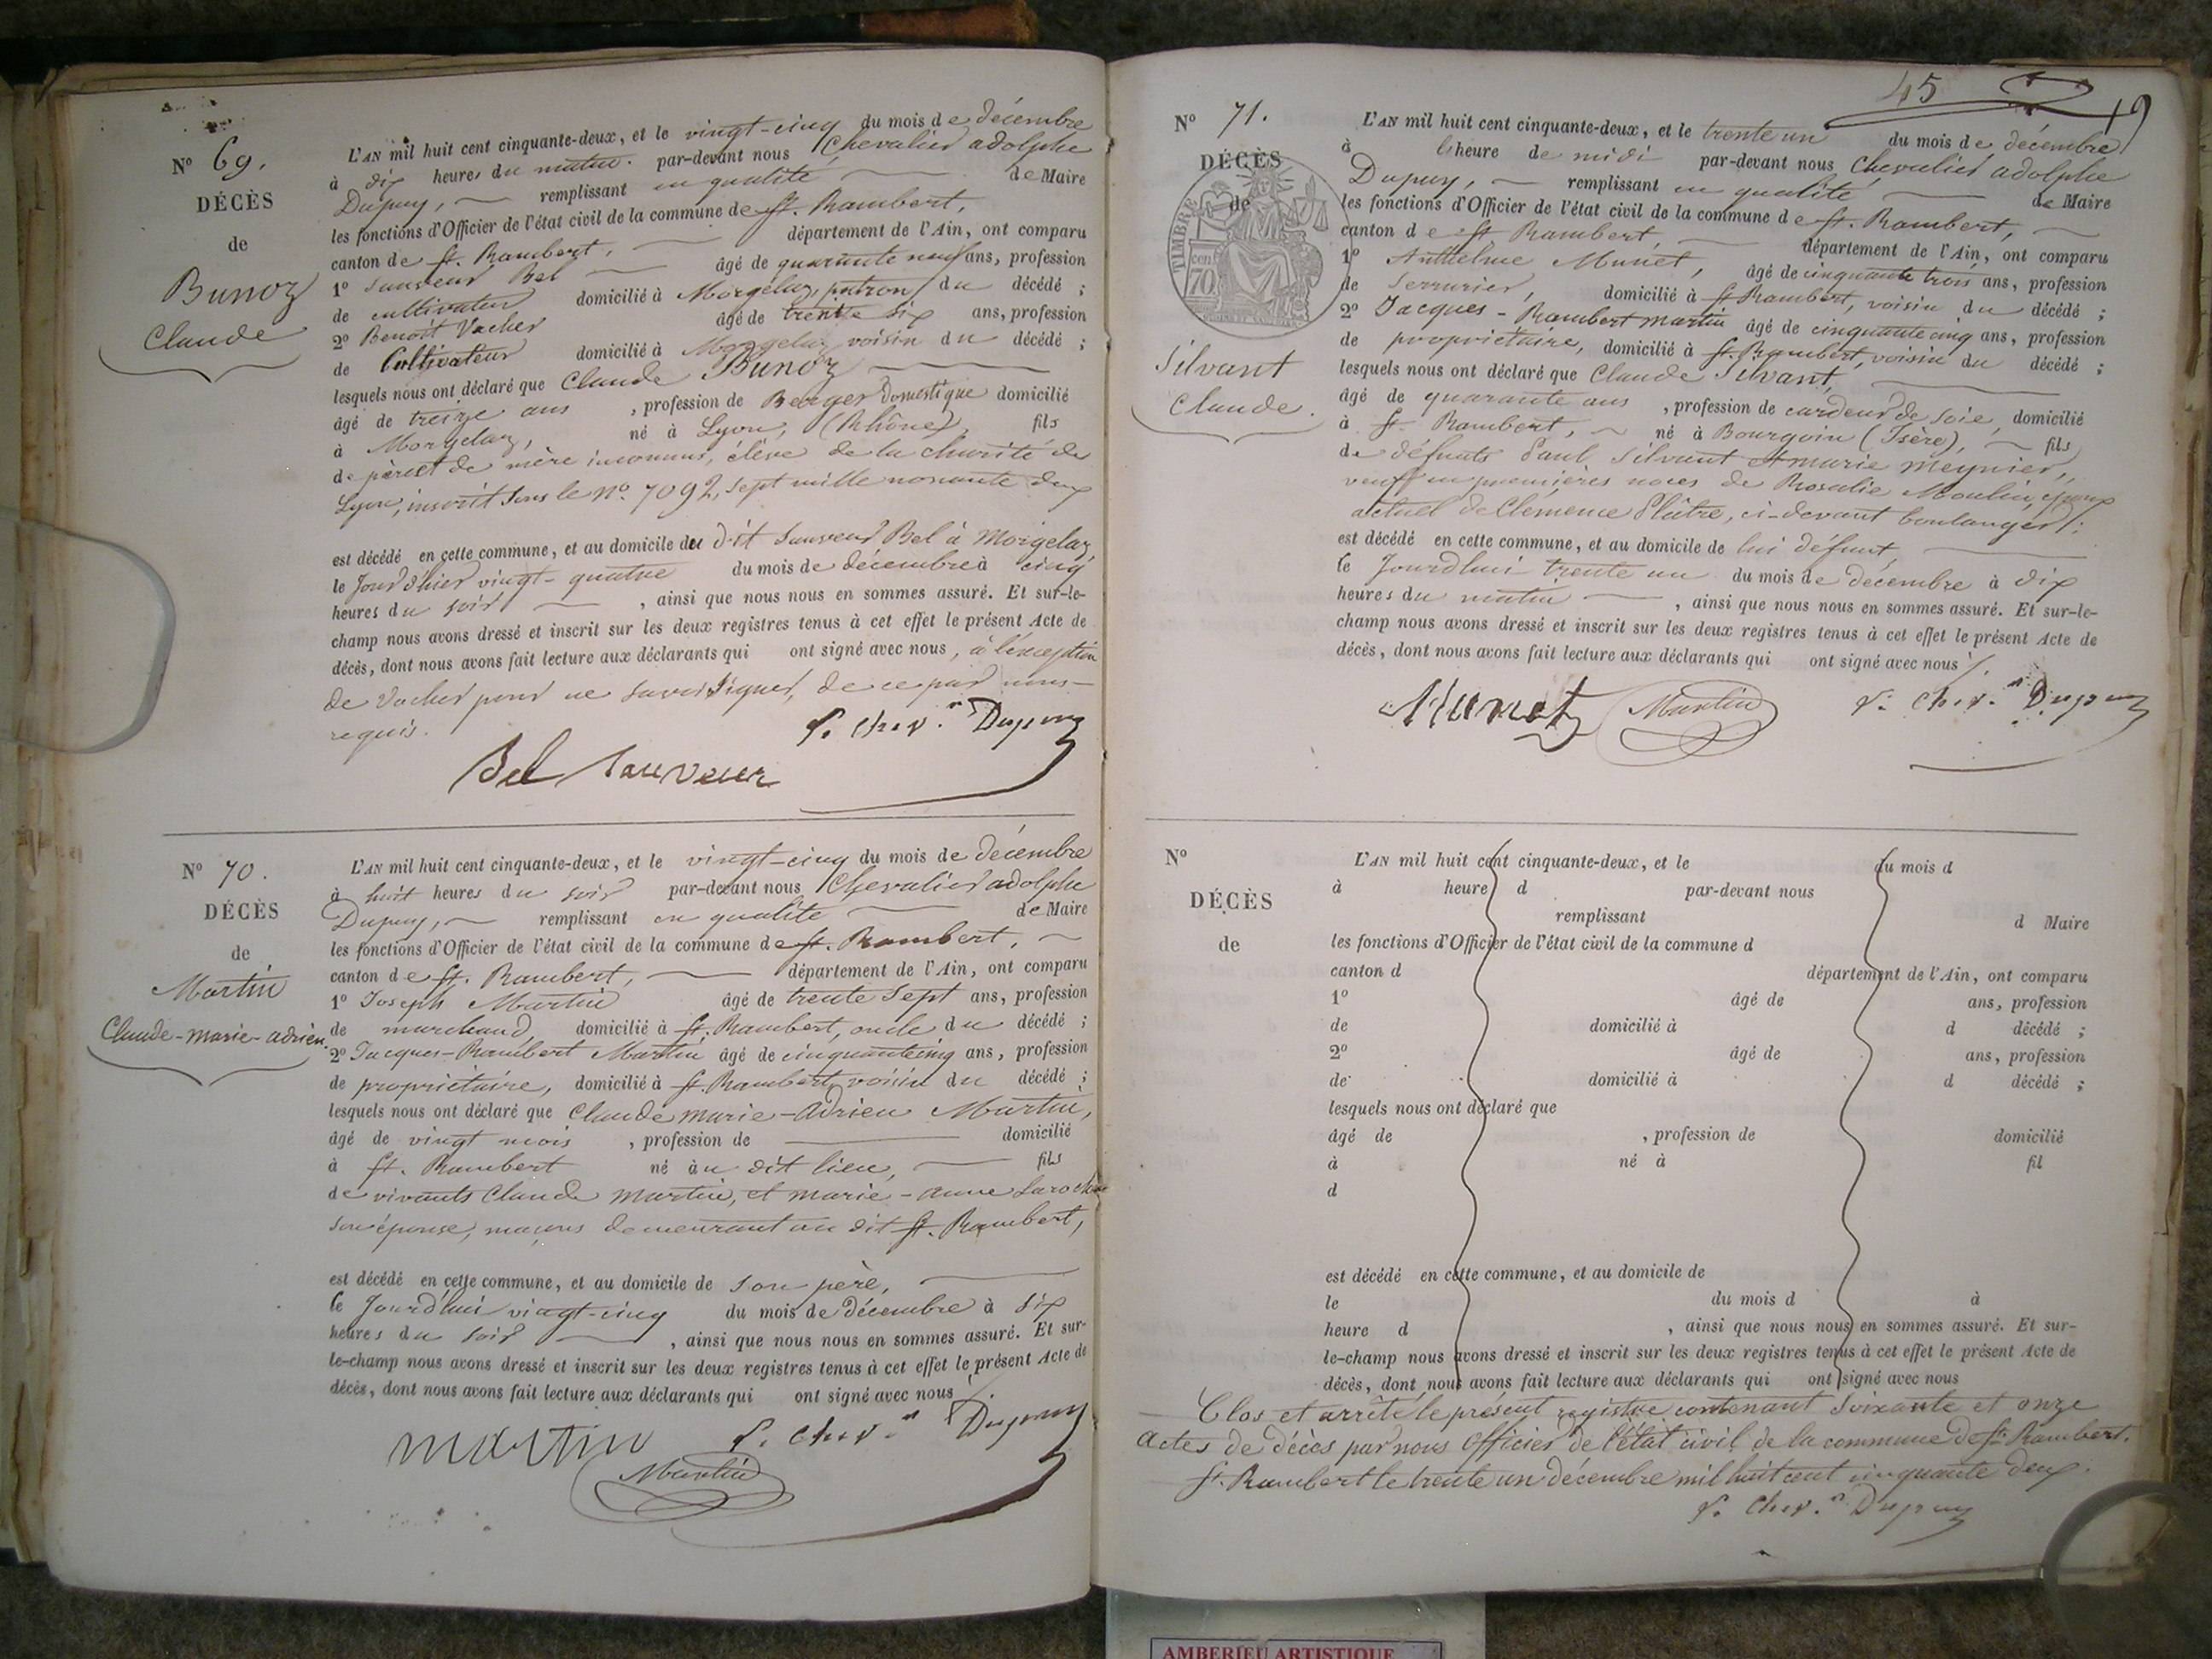 Nº 69.
DÉCÈS
de
Bunoz
Claude
L'AN mil huit cent cinquante-deux, et le vingt-cinq du mois de décembre
à dix heures du matin. par-devant nous Chevalier adolphe
Dupuy, remplissant en qualité de Maire
les fonctions d'Officier de l'état civil de la commune de St. Rambert,
canton de St. Rambert, département de l'Ain, ont comparu
1º Sauveur Bel âgé de quarante neuf ans, profession
de cultivateur domicilié à Morgelaz, patron du décédé ;
2º Benoit Vacher âgé de trente six ans, profession
de Cultivateur domicilié à Morgelaz voisin du décédé ;
lesquels nous ont déclaré que Claude Bunoz
âgé de treize ans , profession de Berger Domestique domicilié
à Morgelaz, né à Lyon, (Rhône), fils
de père et de mère inconnus, élève de la charité de
Lyon, inscrit sous le nº. 7092, sept mille nonante deux
est décédé en cette commune, et au domicile du dit Sauveur Bel à Morgelaz,
le Jour d'hier vingt-quatre du mois de décembre à cinq
heures du soir , ainsi que nous nous en sommes assuré. Et sur-le-
champ nous avons dressé et inscrit sur les deux registres tenus à cet effet le présent Acte de
décès, dont nous avons fait lecture aux déclarants qui ont signé avec nous, à l'exception
de Vacher pour ne savoir signer, de ce par nous
requis.
Bel Sauveur
Dupuy
Nº 70.
DÉCÈS
de
Martin
Claude-marie-adrien.
L'AN mil huit cent cinquante-deux, et le vingt-cinq du mois de décembre
à huit heures du soir par-devant nous Chevalier adolphe
Dupuy, remplissant en qualité de Maire
les fonctions d'Officier de l'état civil de la commune de St. Rambert,
canton de St. Rambert, département de l'Ain, ont comparu
1º Joseph Martin âgé de trente Sept ans, profession
de marchand, domicilié à St. Rambert, oncle du décédé ;
2º Jacques-Rambert Martin âgé de cinquante cinq ans, profession
de propriétaire, domicilié à St. Rambert, voisin du décédé ;
lesquels nous ont déclaré que Claude marie-Adrien Martin,
âgé de vingt mois , profession de domicilié
à St. Rambert né au dit lieu, fils
de vivants Claude Martin, et marie-anne Laroche
son épouse, maçons demeurant au dit St. Rambert,
est décédé en cette commune, et au domicile de son père,
le Jourd'hui vingt-cinq du mois de décembre à six
heures du soir , ainsi que nous nous en sommes assuré. Et sur-
le-champ nous avons dressé et inscrit sur les deux registres tenus à cet effet le présent Acte de
décès, dont nous avons fait lecture aux déclarants qui ont signé avec nous
martin
Martin
Dupuy
45
Nº 71.
DÉCÈS
de
TIMBRE
70
Silvant
Claude.
L'AN mil huit cent cinquante-deux, et le trente un du mois de décembre
à l'heure de midi par-devant nous Chevalier adolphe
Dupuy, remplissant en qualité de Maire
les fonctions d'Officier de l'état civil de la commune de St. Rambert,
canton de St Rambert, département de l'Ain, ont comparu
1º Anthelme Munet, âgé de cinquante trois ans, profession
de Serrurier, domicilié à St Rambert, voisin du décédé ;
2º Jacques-Rambert martin âgé de cinquante cinq ans, profession
de propriétaire, domicilié à St. Rambert, voisin du décédé ;
lesquels nous ont déclaré que Claude Silvant,
âgé de quarante ans , profession de cardeur de soie, domicilié
à St. Rambert, né à Bourgoin (Isère), fils
de défunts Paul Silvant et marie Meynier,
veuf en premières noces de Rosalie Moulin, époux
actuel de Clémence Plâtre, ci-devant boulanger ;
est décédé en cette commune, et au domicile de lui défunt,
le Jourd'hui trente un du mois de décembre à dix
heures du matin , ainsi que nous nous en sommes assuré. Et sur-le-
champ nous avons dressé et inscrit sur les deux registres tenus à cet effet le présent Acte de
décès, dont nous avons fait lecture aux déclarants qui ont signé avec nous
Munet Martin Dupuy
Nº
DÉCÈS
de
L'AN mil huit cent cinquante-deux, et le du mois d
à heure d par-devant nous
remplissant d Maire
les fonctions d'Officier de l'état civil de la commune d
canton d département de l'Ain, ont comparu
1º âgé de ans, profession
de domicilié à d décédé ;
2º âgé de ans, profession
de domicilié à d décédé ;
lesquels nous ont déclaré que
âgé de , profession de domicilié
à né à fil
d
est décédé en cette commune, et au domicile de
le du mois d à
heure d , ainsi que nous nous en sommes assuré. Et sur-
le-champ nous avons dressé et inscrit sur les deux registres tenus à cet effet le présent Acte de
décès, dont nous avons fait lecture aux déclarants qui ont signé avec nous
Clos et arrêté le présent registre contenant soixante et onze
actes de décès par nous Officier de l'état civil de la commune de St. Rambert.
St. Rambert le trente un décembre mil huit cent cinquante deux.
Dupuy
AMBERIEU ARTISTIQUE